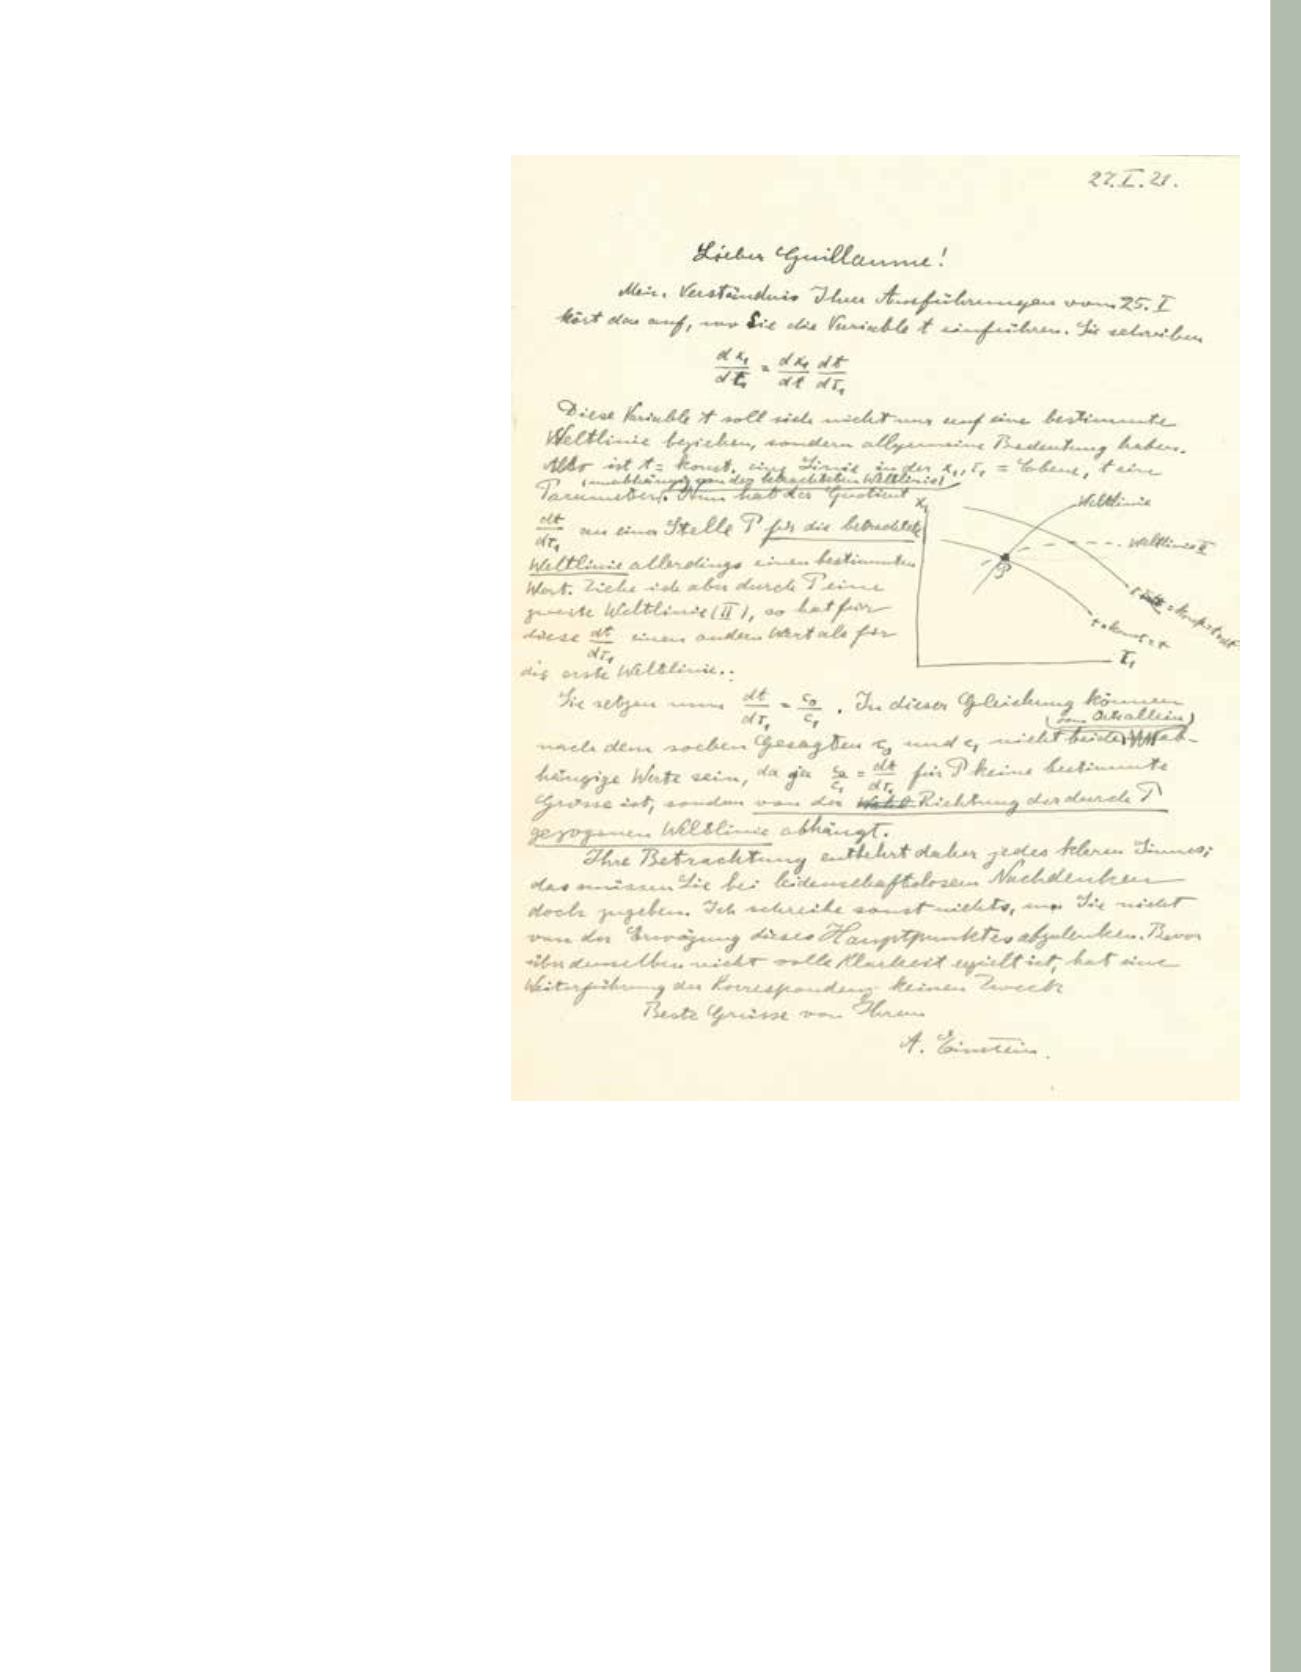 27.I.21.
Lieber Guillaume!
Mein Verständnis Ihrer Ausführungen vom 25. I
hört da auf, wo Sie die Variable t einführen. Sie schreiben
dx₁/dτ₁ = dx₁/dt dt/dτ₁
Diese Variable t soll sich nicht nur auf eine bestimmte
Weltlinie beziehen, sondern allgemeine Bedeutung haben.
Also ist t = konst. eine Linie in der x₁, τ₁ = Ebene, t eine
(unabhängig von der betrachteten Weltlinie)
Parameter. Nun hat der Quotient
dt/dτ₁ an einer Stelle P für die betrachtete
Weltlinie allerdings einen bestimmten
Wert. Ziehe ich aber durch P eine
zweite Weltlinie (II), so hat für
diese dt/dτ₁ einen andern Wert als für
die erste Weltlinie.
x₁
Weltlinie
Weltlinie II
P
t = konst = t
τ₁
Sie setzen nun dt/dτ₁ = c₀/c₁. In dieser Gleichung können
(vom Ort allein)
nach dem soeben Gesagten c₀ und c₁ nicht beide ab-
hängige Werte sein, da ja c₀/c₁ = dt/dτ₁ für P keine bestimmte
Grösse ist, sondern von der Richtung der durch P
gezogenen Weltlinie abhängt.
Ihre Betrachtung entbehrt daher jedes klaren Sinnes;
das müssen Sie bei leidenschaftslosem Nachdenken
doch zugeben. Ich schreibe sonst nichts, um Sie nicht
von der Erwägung dieses Hauptpunktes abzulenken. Bevor
über denselben nicht volle Klarheit erzielt ist, hat eine
Weiterführung der Korrespondenz keinen Zweck
Beste Grüsse von Ihrem
A. Einstein.